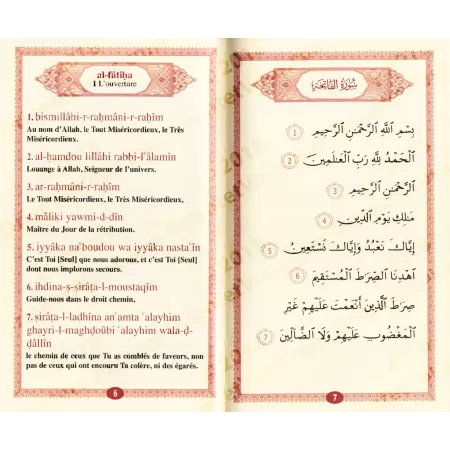 al-fâtiḥa
1 L'ouverture
1. bismillâhi-r-raḥmâni-r-raḥîm
Au nom d'Allah, le Tout Miséricordieux, le Très
Miséricordieux.
2. al-ḥamdou lillâhi rabbi-l'âlamîn
Louange à Allah, Seigneur de l'univers.
3. ar-raḥmâni-r-raḥîm
Le Tout Miséricordieux, le Très Miséricordieux,
4. mâliki yawmi-d-dîn
Maître du Jour de la rétribution.
5. iyyâka na'boudou wa iyyâka nasta'în
C'est Toi [Seul] que nous adorons, et c'est Toi [Seul]
dont nous implorons secours.
6. ihdina-ṣ-ṣirâṭa-l-moustaqîm
Guide-nous dans le droit chemin,
7. ṣirâṭa-l-ladhîna an'amta 'alayhim
ghayri-l-maghḍoûbi 'alayhim wala-ḍ-
ḍâllîn
le chemin de ceux que Tu as comblés de faveurs, non
pas de ceux qui ont encouru Ta colère, ni des égarés.
6
سُورَةُ الفَاتِحَةِ
بِسْمِ ٱللَّهِ ٱلرَّحْمَٰنِ ٱلرَّحِيمِ ١
ٱلْحَمْدُ لِلَّهِ رَبِّ ٱلْعَٰلَمِينَ ٢
ٱلرَّحْمَٰنِ ٱلرَّحِيمِ ٣
مَٰلِكِ يَوْمِ ٱلدِّينِ ٤
إِيَّاكَ نَعْبُدُ وَإِيَّاكَ نَسْتَعِينُ ٥
ٱهْدِنَا ٱلصِّرَٰطَ ٱلْمُسْتَقِيمَ ٦
صِرَٰطَ ٱلَّذِينَ أَنْعَمْتَ عَلَيْهِمْ غَيْرِ
ٱلْمَغْضُوبِ عَلَيْهِمْ وَلَا ٱلضَّآلِّينَ ٧
7